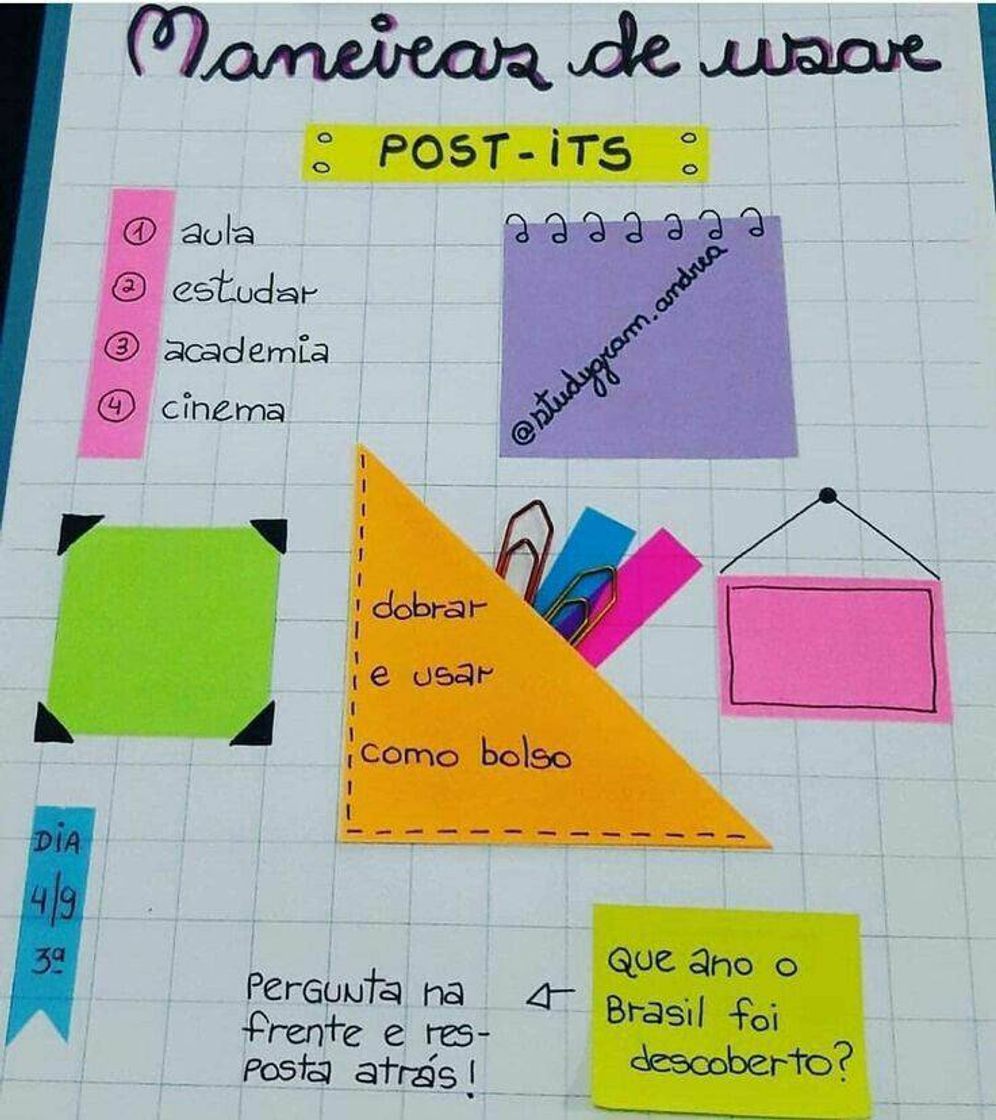 Maneiras de usar
POST-ITS
1 aula
2 estudar
3 academia
4 cinema
@studygram.andrea
dobrar
e usar
como bolso
DIA
4/9
3ª
Pergunta na
frente e res-
posta atrás!
Que ano o
Brasil foi
descoberto?